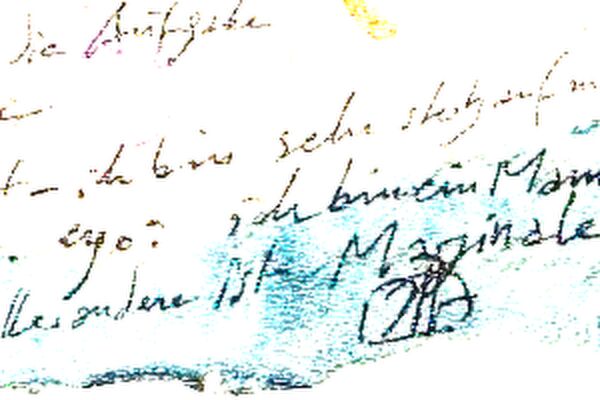 die Aufgabe
ich bin sehr stolz auf m
ergo: ich bin ein Mann
lles andere ist Marginale